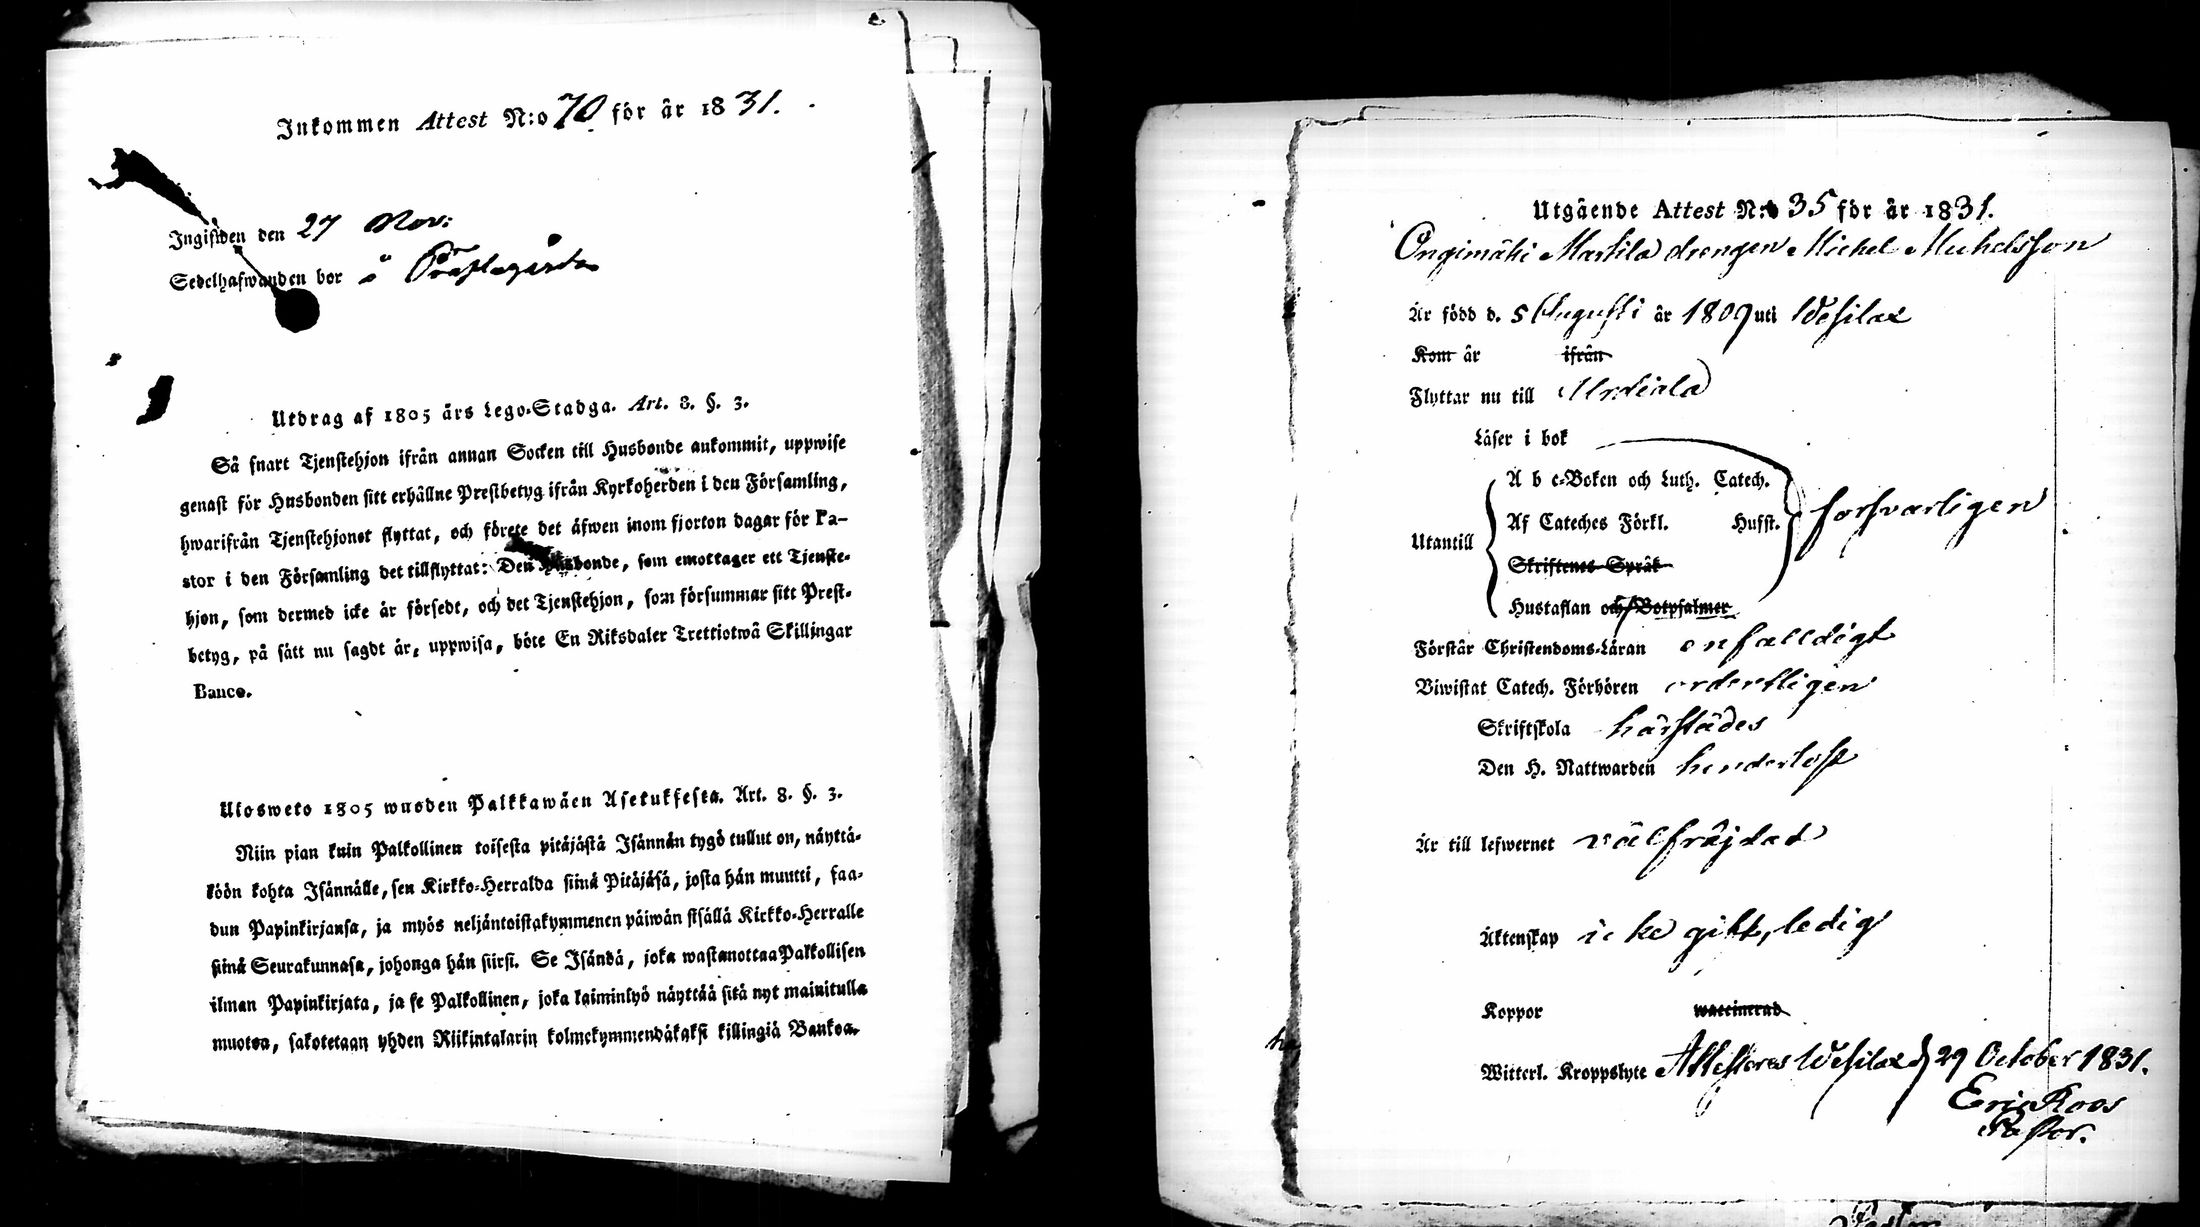 Inkommen Attest N:o 70 för år 1831.
Ingifwen den 27 Nov:
Sedelhafwanden bor å Præstegården
Utdrag af 1805 års Lego-Stadga. Art. 8. §. 3.
Så snart Tjenstehjon ifrån annan Socken till Husbonde ankommit, uppwise
genast för Husbonden sitt erhållne Prestbetyg ifrån Kyrkoherden i den Församling,
hwarifrån Tjenstehjonet flyttat, och förete det äfwen inom fjorton dagar för Pa-
stor i den Församling det tillflyttat: Den Husbonde, som emottager ett Tjenste-
hjon, som dermed icke är försedt, och det Tjenstehjon, som försummar sitt Prest-
betyg, på sätt nu sagdt är, uppwisa, böte En Riksdaler Trettiotwå Skillingar
Banco.
Ulosweto 1805 wuoden Palkkawäen Asetuksesta. Art. 8. §. 3.
Niin pian kuin Palkollinen toisesta pitäjästä Isännän tygö tullut on, näyttä-
köön kohta Isännälle, sen Kirkko-Herralda siinä Pitäjäsä, josta hän muutti, saa-
dun Papinkirjansa, ja myös neljäntoistakymmenen päiwän sisällä Kirkko-Herralle
siinä Seurakunnasa, johonga hän siirsi. Se Isändä, joka wastanottaa Palkollisen
ilman Papinkirjata, ja se Palkollinen, joka laiminlyö näyttää sitä nyt mainitulla
muotoa, sakotetaan yhden Riikintalarin kolmekymmendäkaksi killingiä Bankoa.
Utgående Attest N:o 35 för år 1831.
Ongimäki Markila drengen Michel Michelsson
Är född d. 5 Augusti år 1809 uti Wesilax
Kom år ifrån
Flyttar nu till Urdiala
Läser i bok
A b c-Boken och Luth. Catech.
Af Cateches Förkl. Hufst. försvarligen
Utantill
Skriftenes Språk
Hustaflan och Botpsalmer
Förstår Christendoms-Läran enfalldigt
Biwistat Catech. Förhören ordentligen
Skriftskola härstädes
Den H. Nattwarden
Är till lefwernet välfräjdad
Äktenskap icke gift, ledig
Koppor waccinerad
Witterl. Kroppslyte Attesteras Wesilax d 29 October 1831.
Eric Roos
Pastor.